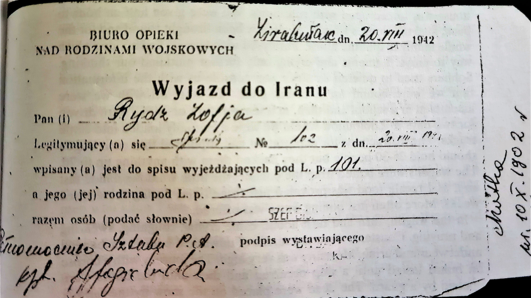 BIURO OPIEKI
NAD RODZINAMI WOJSKOWYCH
dn. 20.VIII 1942
Wyjazd do Iranu
Pan (i) Rydz Zofja
Legitymujący (a) się № 102 z dn. 20.VIII
wpisany (a) jest do spisu wyjeżdżających pod L. p. 101.
a jego (jej) rodzina pod L. p.
razem osób (podać słownie)
SZEF
Sztabu P.A. podpis wystawiającego
kpt.
Matka
ur. 10 XI. 1902 r